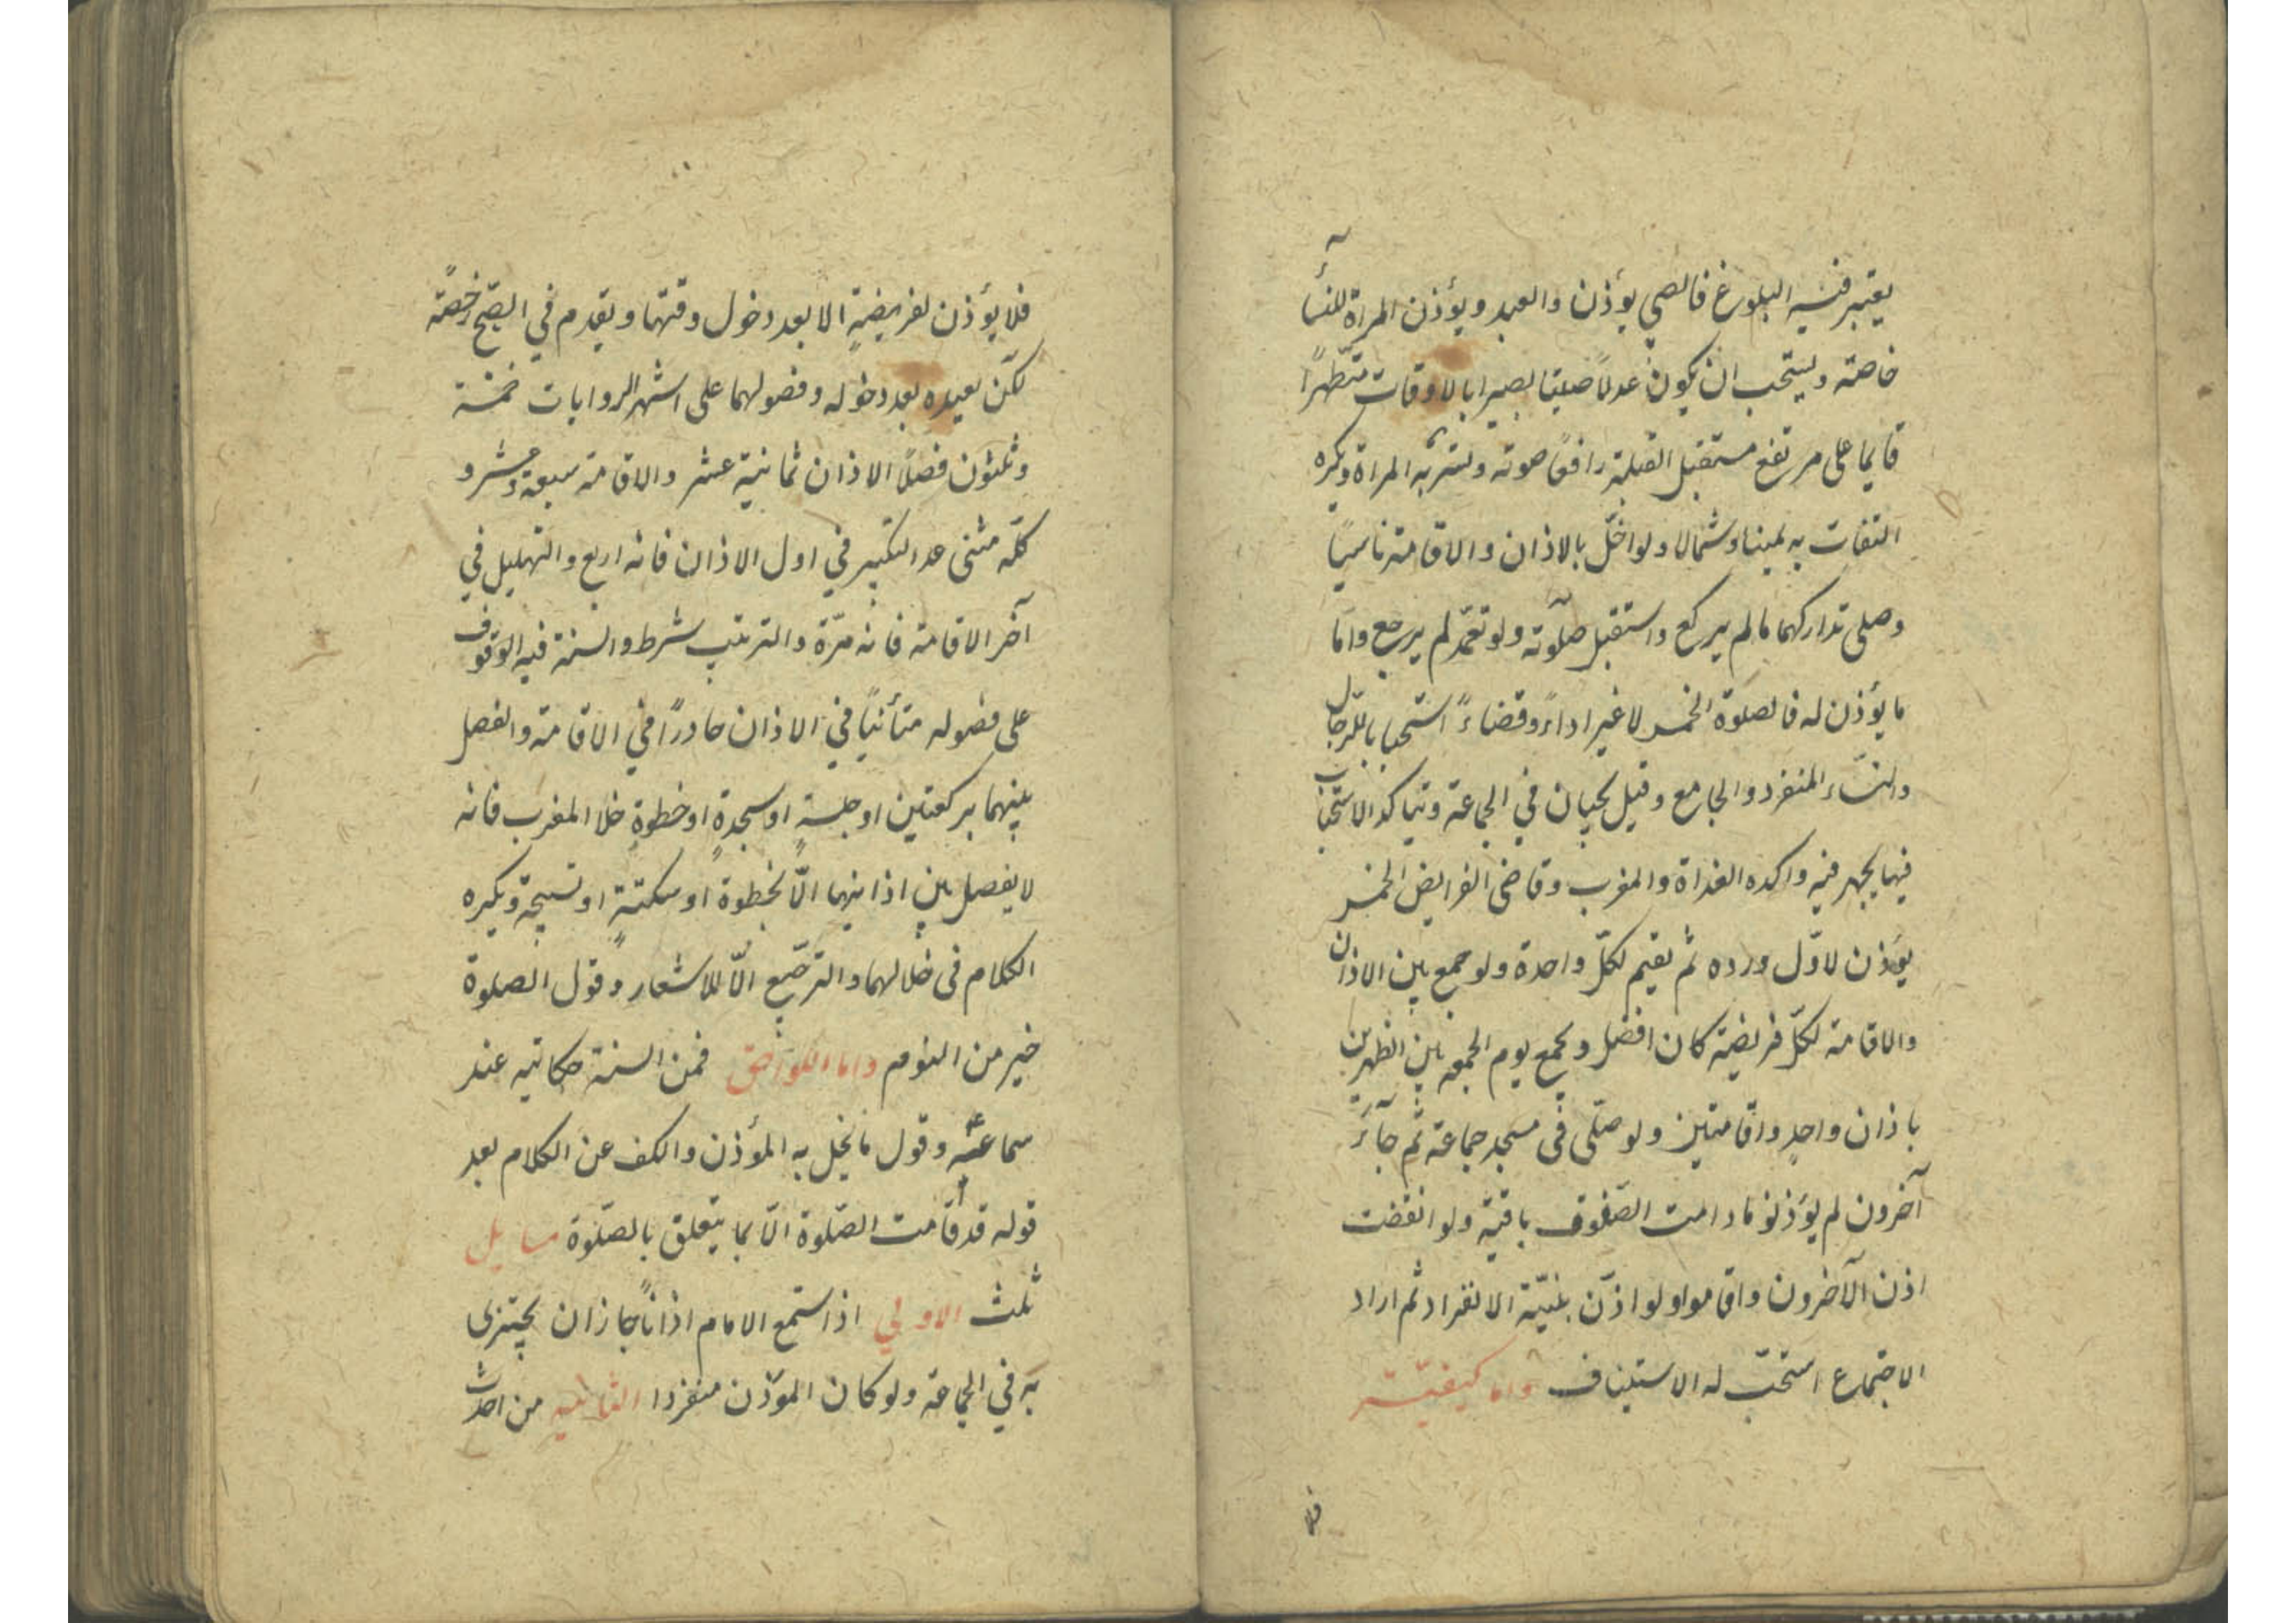 يعتبر فيه البلوغ فالصبي يؤذن والعبد ويؤذن المراة للنسآء
خاصة ويستحب ان يكون عدلاً صيتا بصيرا بالاوقات متطهراً
قايما على مرتفع مستقبل القبلة رافعا صوته وتسر به المراة ويكره
التفات به يمينا وشمالا ولو اخلّ بالاذان والاقامة ناسياً
وصلى تداركهما ما لم يركع واستقبل صلوته ولو تعمّد لم يرجع واما
ما يؤذن له فالصلوة الخمس لا غير اداءً وقضاءً استحبابا للرجال
والنساء المنفرد والجامع وقيل يجبان في الجماعة ويتاكد الاستحباب
فيما يجهر فيه واكده الغداة والمغرب وقاضي الفرايض الخمس
يؤذن لاوّل ورده ثم يقيم لكلّ واحدة ولو جمع بين الاذان
والاقامة لكلّ فريضة كان افضل ويجمع يوم الجمعه بين الظهرين
باذان واحدٍ واقامتين ولو صلّى في مسجد جماعة ثم جآءَ
آخرون لم يؤذنوا مادامت الصّفوف باقية ولو انفضت
اذن الآخرون واقاموا ولو اذّن بنيّة الانفراد ثم اراد
الاجتماع استحبّ له الاستيناف واما كيفيّته
فلا
فلا يؤذن لفريضةٍ الا بعد دخول وقتها ويقدم في الصّبح رخصةً
لكن يعيده بعد دخوله وفصولهما على اشهر الروايات خمسة
وثلثون فصلاً الاذان ثمانية عشر والاقامة سبعة عشر و
كلّه مثنى عدا التكبير في اول الاذان فانه اربع والتهليل في
آخر الاقامة فانه مرّة والترتيب شرط والسنة فيه الوقوف
على فصوله متأنياً في الاذان حادرًا في الاقامة والفصل
بينهما بركعتين او جلسةٍ او سجدةٍ او خطوةٍ خلا المغرب فانه
لا يفصل بين اذانيهما الّا بخطوة او سكتةٍ او تسبيحة ويكره
الكلام فى خلالهما والترجيع الّا للاشعار وقول الصلوة
خير من النوم واما اللواحق فمن السنة حكايته عند
سماعه وقول ما يخل به المؤذن والكف عن الكلام بعد
قوله قد قامت الصّلوة الّا بما يتعلق بالصّلوة مسايل
ثلث الاولي اذا استمع الامام اذاناً جاز ان يجتزى
به في الجماعة ولو كان المؤذن منفردا الثانيه من احدث